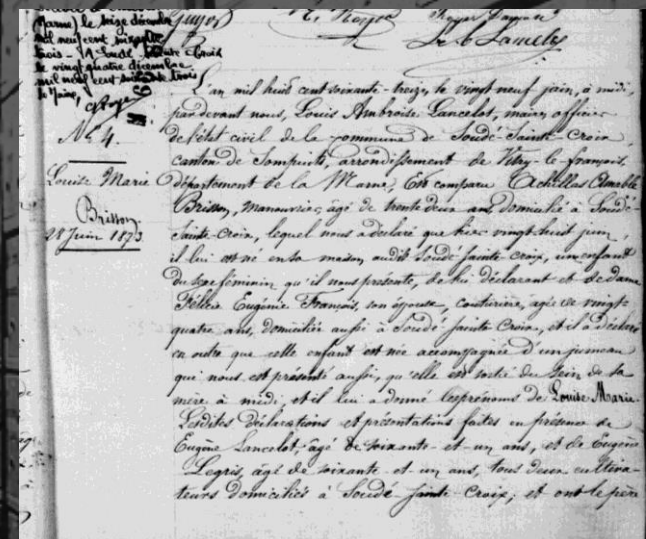 Marne, le seize décembre
mil neuf cent soixante
trois. A Soudé Sainte Croix
le vingt quatre décembre
mil neuf cent soixante trois
le Maire,
N° 4.
Louise Marie
Brisson
28 Juin 1873
L'an mil huit cent soixante-treize, le vingt neuf juin, à midi,
pardevant nous, Louis Ambroise Lancelot, maire, officier
de l'état civil de la commune de Soudé-Sainte Croix,
canton de Sompuits, arrondissement de Vitry-le-françois,
département de la Marne, Est comparu Achillas Amable
Brisson, manouvrier, âgé de trente deux ans, domicilié à Soudé-
Sainte-Croix, lequel nous a déclaré que hier vingt huit juin
il lui est né en sa maison, audit Soudé Sainte Croix, un enfant
du sexe féminin qu'il nous présente, de lui déclarant et de dame
Félicie Eugénie François, son épouse, couturière, âgée de vingt
quatre ans, domiciliée aussi à Soudé Sainte Croix, et il a déclaré
en outre que cette enfant est née accompagnée d'un jumeau
qui nous est présenté aussi, qu'elle est sortie du sein de sa
mère à midi, et il lui a donné les prénoms de Louise Marie.
Lesdites déclarations et présentations faites en présence de
Eugène Lancelot, âgé de soixante et un ans, et de Eugène
Legris, âgé de soixante et un ans, tous deux cultiva-
teurs domiciliés à Soudé-Sainte-Croix; et ont le père